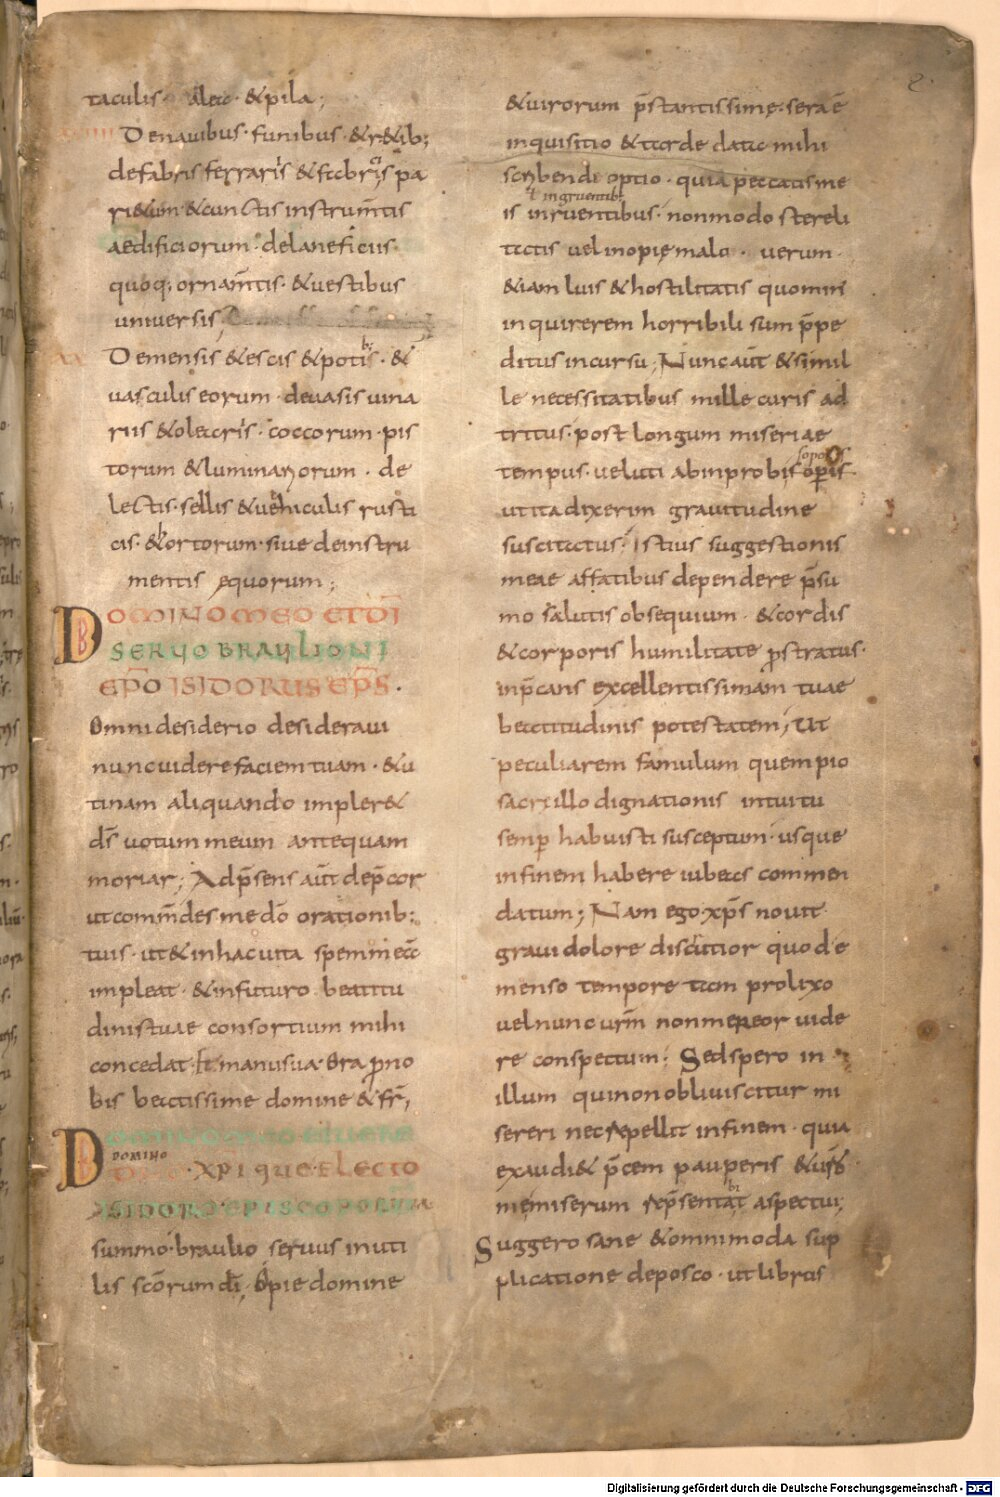 taculis · alea · & pila ;
De nauibus · funibus · & r&ib;
de fabris ferraris & fabricis pa
ri&um · & cunctis instrum̄tis
aedificiorum · de laneficiis ·
quoq; ornam̄tis · & uestibus
uniuersis ;
De mensis & escis & potibus · &
uasculis eorum · de uasis uina
riis & oleariis · coccorum · pis
torum & luminariorum · de
lectis · sellis & uehiculis rusti
cis · & hortorum · siue de instru
mentis ęquorum ;
DOMINO MEO ET DĪ
SERVO BRAVLIONI
EP̄O ISIDORUS EP̄S ·
Omni desiderio desideraui
nunc uidere faciem tuam · & u
tinam aliquando impler&
d̄s uotum meum antequam
moriar ; Ad p̄sens aūt dep̄cor
ut com̄mdes me dō orationib;
tuis · ut & in hac uita spem meā
impleat · & in futuro beatitu
dinis tuae consortium mihi
concedat · Et manu sua · Ora pro no
bis beatissime domine & fr̄ ;
DOMINO MEO ET UERE
DOMINO
XPI QUE ELECTO
ISIDORO EPISCOPORUM
summo · braulio seruus inuti
lis sc̄orum dī ; O pie domine
& uirorum p̄stantissime · sera ē
inquisitio & tarde data mihi
scribendi optio · quia peccatis me
ł ingruentib;
is inruentibus · non modo stereli
tatis uel inopię mala · uerum ·
&iam luis & hostilitatis quomin;
inquirerem horribili sum p̄pe
ditus incursu ; Nunc aūt &si mil
le necessitatibus mille curis ad
tritus · post longum miseriae
tempus · ueluti ab inprobis operis
ut ita dixerim grauitudine
suscitatus · Istius suggestionis
meae affatibus dependere p̄su
mo salutis obsequium · & cordis
& corporis humilitate prostratus ·
inp̄cans excellentissimam tuae
beatitudinis potestatem ; Ut
peculiarem famulum quem pio
sacrillo dignationis intuitu
semper habuisti susceptum · usque
in finem habere iubeas commen
datum ; Nam ego xp̄s nouit
graui dolore discutior quod e
menso tempore tam prolixo
uel nunc ur̄m non mereor uide
re conspectum · Sed spero in
illum qui non obliuiscitur mi
sereri nec repellit in finem · quia
exaudi& p̄cem pauperis & uris
me miserum rep̄sentabit aspectui ;
Suggero sane & omnimoda sup
plicatione deposco · ut libris
Digitalisierung gefördert durch die Deutsche Forschungsgemeinschaft - DFG